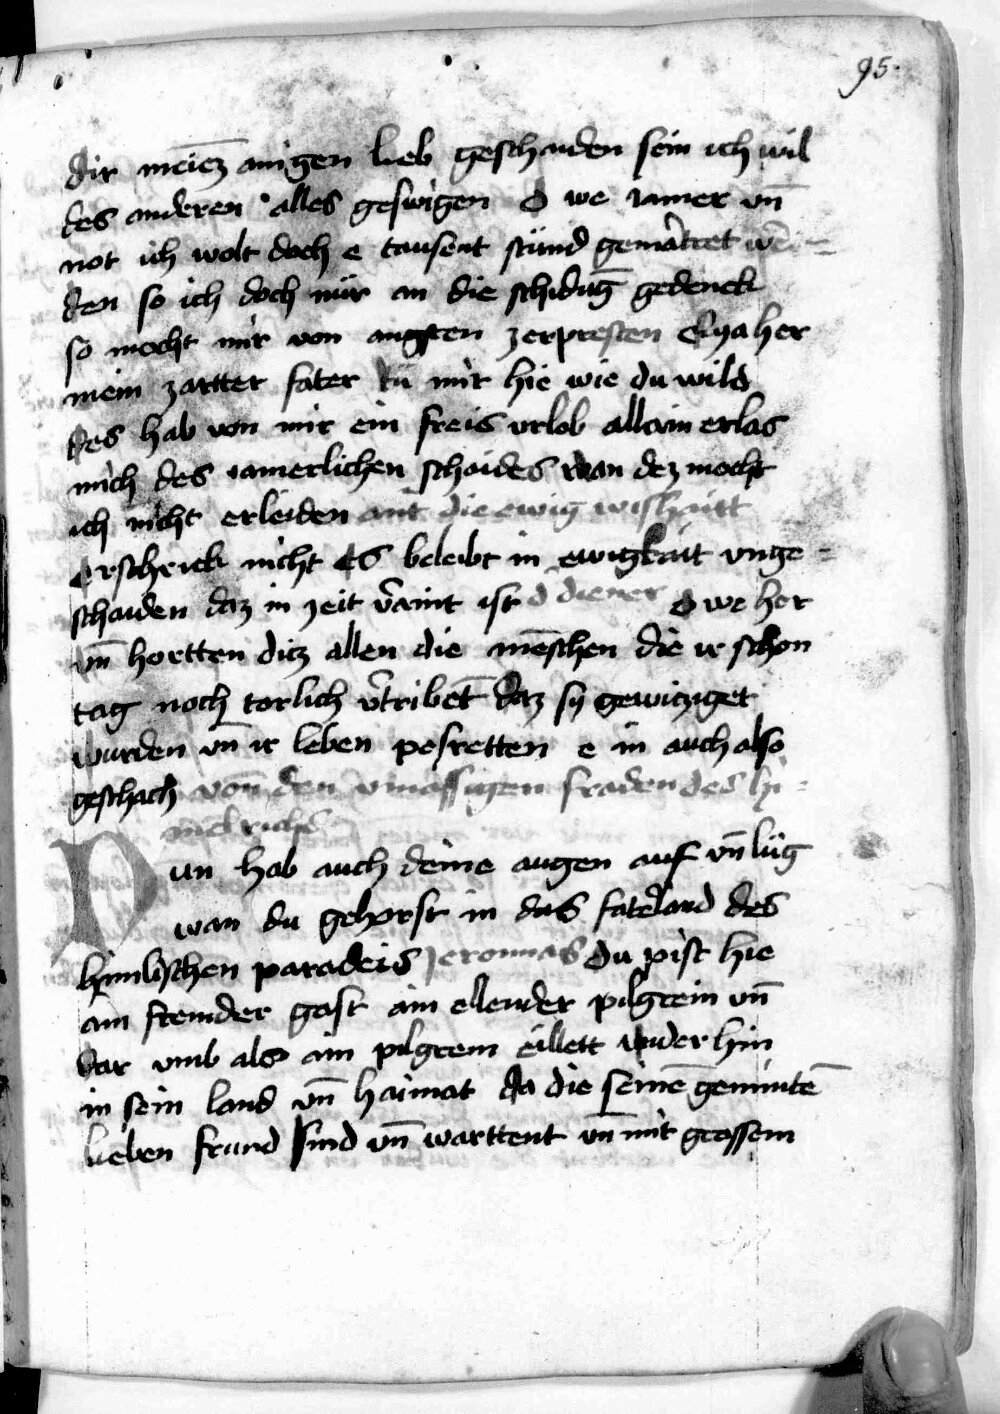 95.
dir meiez ainigen lieb geschaiden sein ich wil
des anderen alles geswigen O we iamer vn̄
not ich wolt doch e tausent stünd gemartret wē=
den so ich doch nür an die schidūg gedenck
so mocht mir von angsten zerpresten Eya her
mein zartter fater tü mir hie wie du wild
des hab von mir ein freis vrlob allain erlas
mich des iamerlichen schaides wan dez mocht
ich nicht erleiden ant die ewig wishaitt
erschrick nicht es beleibt in ewigkait vnge=
schaiden daz in zeit v̄aint ist d diener O we her
vn̄ hortten ditz allen die mēschen die ir schon
tag noch torlich v̄tribēt daz sy gewitziget
wurden vn̄ ir leben pesretten e in auch also
geschach von den vnmässigen fraden des hi=
melrichs
Nun hab auch deine augen auf vn̄ lüg
wan du gehorst in das faterland des
himlischen paradeis Jeronimas du pist hie
ain fremder gast ain ellender pilgrein vn̄
dar vmb als ain pilgrein eillett wider hin
in sein land vn̄ haimat da die seinē gemintē
lieben frund sind vn̄ warttent vn̄ mit grossem